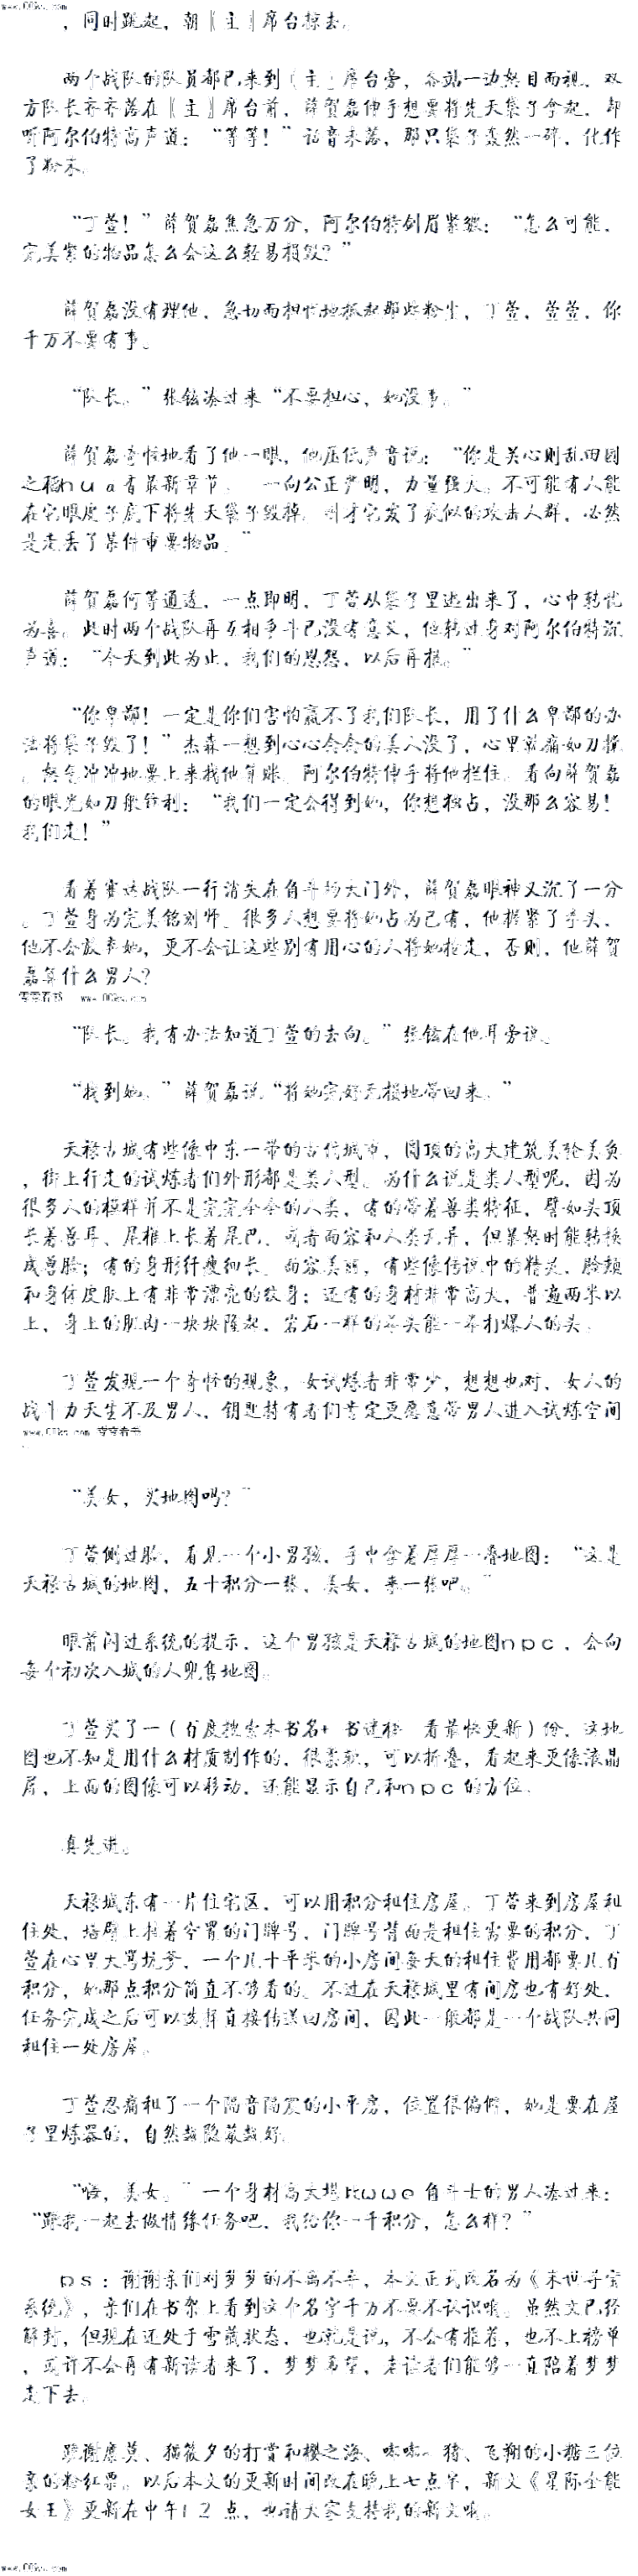 www.00ks.com
，同时跳起，朝〖主〗席台掠去。
两个战队的队员都已来到〖主〗席台旁，各站一边怒目而视，双
方队长齐齐落在〖主〗席台前，薛贺磊伸手想要将先天袋子拿起，却
听阿尔伯特高声道：“等等！”话音未落，那只袋子轰然一碎，化作
了粉末。
“丁萱！”薛贺磊焦急万分，阿尔伯特剑眉紧皱：“怎么可能，
完美紫的物品怎么会这么轻易损毁？”
薛贺磊没有理他，急切而担忧地抓起那些粉尘，丁萱，萱萱，你
千万不要有事。
“队长。”张铉凑过来“不要担心，她没事。”
薛贺磊奇怪地看了他一眼，他压低声音说：“你是关心则乱田园
之稻ｈｕａ看最新章节。 一向公正严明，力量强大，不可能有人能
在它眼皮子底下将先天袋子毁掉，刚才它发了疯似的攻击人群，必然
是走丢了某件重要物品。”
薛贺磊何等通透，一点即明，丁萱从袋子里逃出来了，心中转忧
为喜。此时两个战队再互相争斗已没有意义，他转过身对阿尔伯特沉
声道：“今天到此为止，我们的恩怨，以后再报。”
“你卑鄙！一定是你们害怕赢不了我们队长，用了什么卑鄙的办
法将袋子毁了！”杰森一想到心心念念的美人没了，心里就痛如刀搅
，怒气冲冲地要上来找他算账。阿尔伯特伸手将他拦住，看向薛贺磊
的眼光如刀般锋利：“我们一定会得到她，你想独占，没那么容易！
我们走！”
看着赛达战队一行消失在角斗场大门外，薛贺磊眼神又沉了一分
。丁萱身为完美铭刻师，很多人想要将她占为己有，他握紧了拳头，
他不会放弃她，更不会让这些别有用心的人将她抢走，否则，他薛贺
磊算什么男人？
零零看书 www.00ks.com
“队长。我有办法知道丁萱的去向。”张铉在他耳旁说。
“找到她，”薛贺磊说“将她完好无损地带回来。”
天禄古城有些像中东一带的古代城市，圆顶的高大建筑美轮美奂
，街上行走的试炼者们外形都是类人型。为什么说是类人型呢，因为
很多人的模样并不是完完全全的人类，有的带着兽类特征，譬如头顶
长着兽耳、尾椎上长着尾巴，或者面容和人类无异，但暴怒时能转换
成兽脸；有的身形纤瘦细长，面容美丽，有些像传说中的精灵，脸颊
和身体皮肤上有非常漂亮的纹身；还有的身材非常高大，普遍两米以
上，身上的肌肉一块块隆起，岩石一样的拳头能一拳打爆人的头。
丁萱发现一个奇怪的现象，女试炼者非常少，想想也对，女人的
战斗力天生不及男人，钥匙持有者们肯定更愿意带男人进入试炼空间
www.00ks.com 零零看书
。
“美女，买地图吗？”
丁萱侧过脸，看见一个小男孩，手中拿着厚厚一叠地图：“这是
天禄古城的地图，五十积分一张，美女，来一张吧。”
眼前闪过系统的提示，这个男孩是天禄古城的地图ｎｐｃ，会向
每个初次入城的人兜售地图。
丁萱买了一（百度搜索本书名＋ 书迷楼 看最快更新）份，这地
图也不知是用什么材质制作的，很柔软，可以折叠，看起来更像液晶
屏，上面的图像可以移动，还能显示自己和ｎｐｃ的方位。
真先进。
天禄城东有一片住宅区，可以用积分租住房屋。丁萱来到房屋租
住处，墙壁上挂着空置的门牌号，门牌号背面是租住需要的积分，丁
萱在心里大骂坑爹，一个几十平米的小房间每天的租住费用都要几百
积分，她那点积分简直不够看的。不过在天禄城里有间房也有好处，
任务完成之后可以选择直接传送回房间，因此一般都是一个战队共同
租住一处房屋。
丁萱忍痛租了一个隔音隔震的小平房，位置很偏僻，她是要在屋
子里炼器的，自然越隐蔽越好。
“嗨，美女。”一个身材高大堪比ｗｗｅ角斗士的男人凑过来：
“跟我一起去做情缘任务吧，我给你一千积分，怎么样？”
ｐｓ：谢谢亲们对梦梦的不离不弃，本文正式改名为《末世寻宝
系统》，亲们在书架上看到这个名字千万不要不认识哦。虽然文已经
解封，但现在还处于雪藏状态，也就是说，不会有推荐，也不上榜单
，或许不会再有新读者来了，梦梦希望，老读者们能够一直陪着梦梦
走下去。
跪谢糜莫、猫筱夕的打赏和樱之海、嘟嘟~猪、飞翔的小糖三位
亲的粉红票。以后本文的更新时间改在晚上七点半，新文《星际全能
女王》更新在中午１２点，也请大家支持我的新文哦。
www.00ks.com